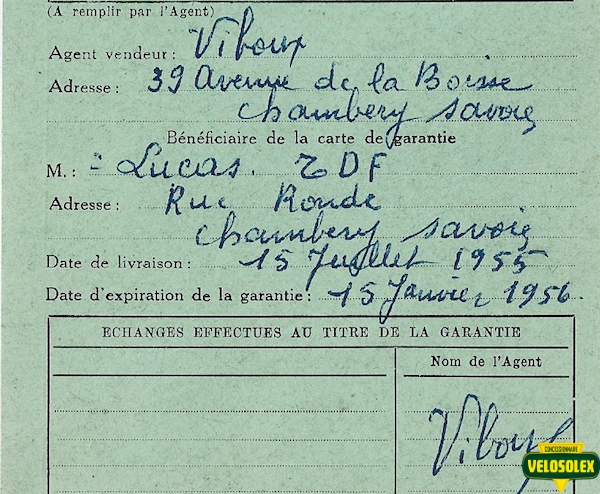 (A remplir par l'Agent)
Agent vendeur: Viboux
Adresse: 39 Avenue de la Boisse
Chambery Savoie
Bénéficiaire de la carte de garantie
M.: Lucas. EDF
Adresse: Rue Ronde
Chambery Savoie
Date de livraison: 15 Juillet 1955
Date d'expiration de la garantie: 15 Janvier 1956.
ECHANGES EFFECTUES AU TITRE DE LA GARANTIE
Nom de l'Agent
Viboux
CONCESSIONNAIRE
VELOSOLEX